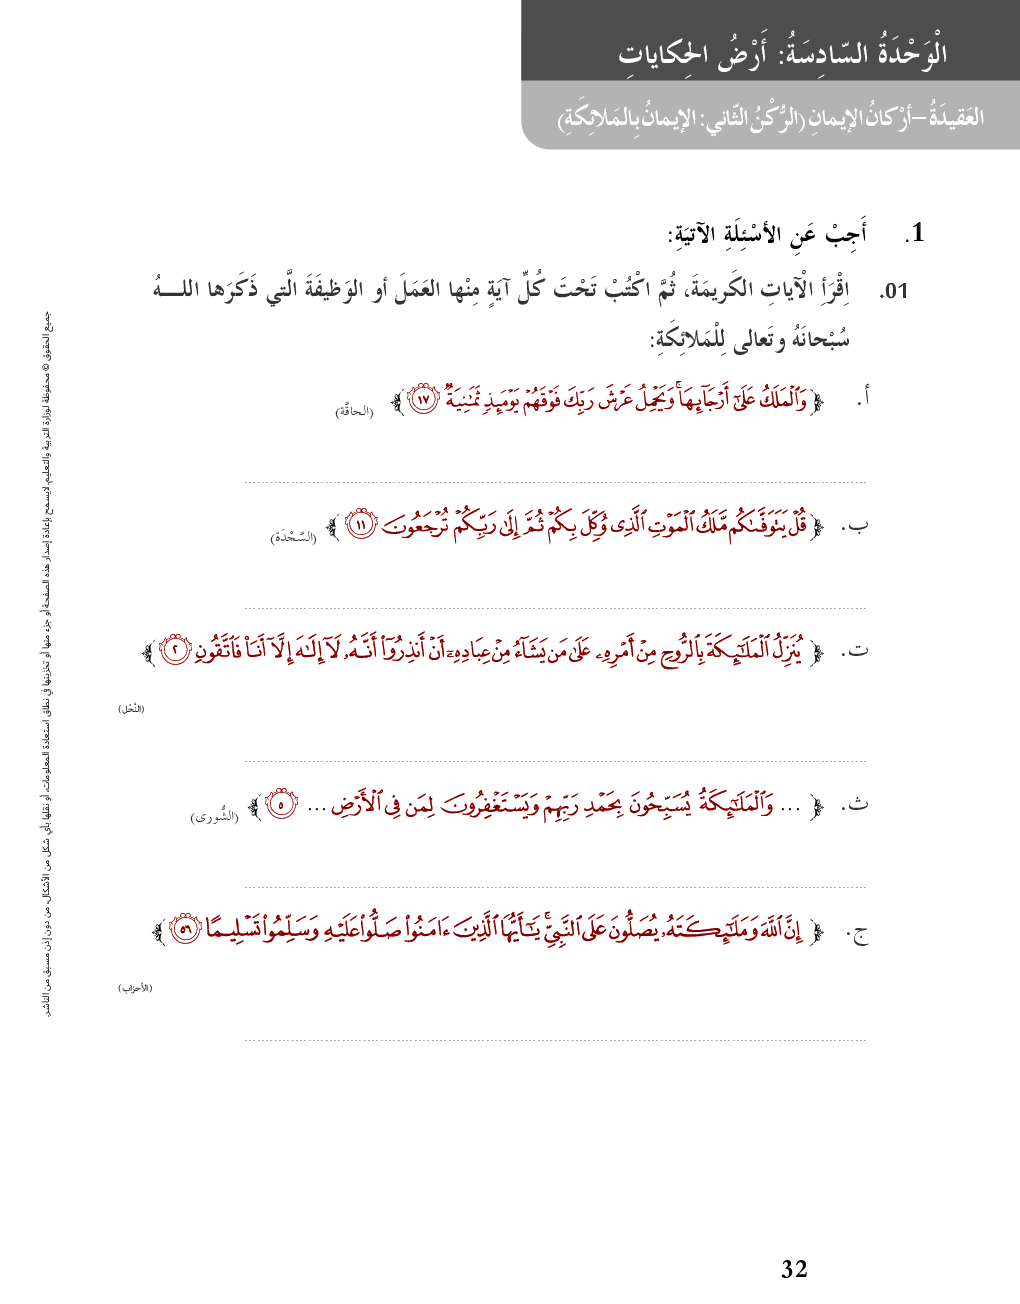 الْوَحْدَةُ السّادِسَةُ: أَرْضُ الحِكاياتِ
العَقيدَةُ – أرْكانُ الإيمانِ (الرُّكْنُ الثّاني: الإيمانُ بِالمَلائِكَةِ)
1. أَجِبْ عَنِ الأسْئِلَةِ الآتيَةِ:
01. اِقْرَأِ الْآياتِ الكَريمَةَ، ثُمَّ اكْتُبْ تَحْتَ كُلِّ آيَةٍ مِنْها العَمَلَ أو الوَظيفَةَ الَّتي ذَكَرَها اللـــهُ
سُبْحانَهُ وتَعالى لِلْمَلائِكَةِ:
أ. ﴿ وَٱلْمَلَكُ عَلَىٰٓ أَرْجَآئِهَا ۚ وَيَحْمِلُ عَرْشَ رَبِّكَ فَوْقَهُمْ يَوْمَئِذٍ ثَمَـٰنِيَةٌ ١٧ ﴾ (الحاقّة)
ب. ﴿ قُلْ يَتَوَفَّىٰكُم مَّلَكُ ٱلْمَوْتِ ٱلَّذِى وُكِّلَ بِكُمْ ثُمَّ إِلَىٰ رَبِّكُمْ تُرْجَعُونَ ١١ ﴾ (السَّجْدَة)
ت. ﴿ يُنَزِّلُ ٱلْمَلَـٰٓئِكَةَ بِٱلرُّوحِ مِنْ أَمْرِهِۦ عَلَىٰ مَن يَشَآءُ مِنْ عِبَادِهِۦٓ أَنْ أَنذِرُوٓا۟ أَنَّهُۥ لَآ إِلَـٰهَ إِلَّآ أَنَا۠ فَٱتَّقُونِ ٢ ﴾
(النَّحْل)
ث. ﴿ ... وَٱلْمَلَـٰٓئِكَةُ يُسَبِّحُونَ بِحَمْدِ رَبِّهِمْ وَيَسْتَغْفِرُونَ لِمَن فِى ٱلْأَرْضِ ... ٥ ﴾ (الشُّورى)
ج. ﴿ إِنَّ ٱللَّهَ وَمَلَـٰٓئِكَتَهُۥ يُصَلُّونَ عَلَى ٱلنَّبِىِّ ۚ يَـٰٓأَيُّهَا ٱلَّذِينَ ءَامَنُوا۟ صَلُّوا۟ عَلَيْهِ وَسَلِّمُوا۟ تَسْلِيمًا ٥٦ ﴾
(الأحزاب)
جميع الحقوق © محفوظة لوزارة التربية والتعليم. لايسمح بإعادة إصدار هذه الصفحة أو جزء منها أو تخزينها في نطاق استعادة المعلومات، أو نقلها بأي شكل من الأشكال، من دون إذن مسبق من الناشر.
32